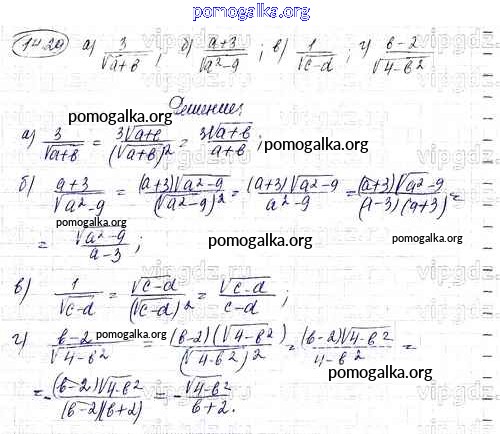 pomogalka.org
14.29 а) 3/√(a+b); б) (a+3)/√(a²-9); в) 1/√(c-d); г) (b-2)/√(4-b²)
Решение:
pomogalka.org
а) 3/√(a+b) = 3√(a+b)/(√(a+b))² = 3√(a+b)/(a+b);
pomogalka.org
б) (a+3)/√(a²-9) = (a+3)√(a²-9)/(√(a²-9))² = (a+3)√(a²-9)/(a²-9) = (a+3)√(a²-9)/((a-3)(a+3)) =
pomogalka.org
= √(a²-9)/(a-3); pomogalka.org pomogalka.org
в) 1/√(c-d) = √(c-d)/(√(c-d))² = √(c-d)/(c-d);
pomogalka.org
г) (b-2)/√(4-b²) = (b-2)(√(4-b²))/(√(4-b²))² = (b-2)√(4-b²)/(4-b²) =
pomogalka.org
= -(b-2)√(4-b²)/((b-2)(b+2)) = -√(4-b²)/(b+2).
pomogalka.org